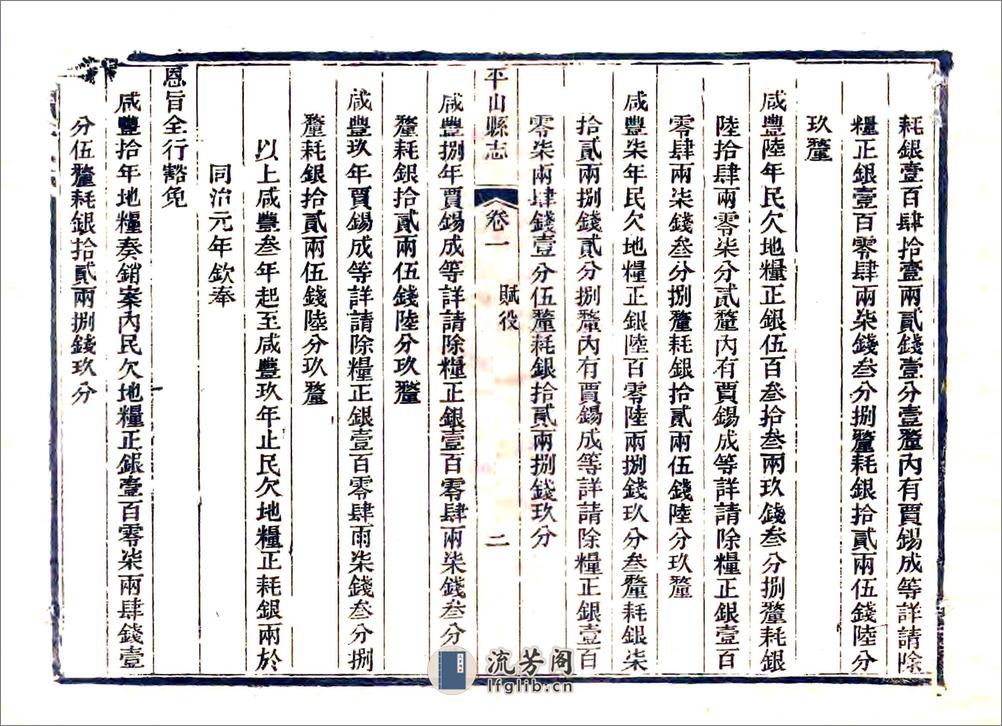 耗銀壹百肆拾壹兩貳錢壹分壹釐內有賈錫成等詳請除
糧正銀壹百零肆兩柒錢叁分捌釐耗銀拾貳兩伍錢陸分
玖釐
咸豐陸年民欠地糧正銀伍百叁拾叁兩玖錢叁分捌釐耗銀
陸拾肆兩零柒分貳釐內有賈錫成等詳請除糧正銀壹百
零肆兩柒錢叁分捌釐耗銀拾貳兩伍錢陸分玖釐
咸豐柒年民欠地糧正銀陸百零陸兩捌錢玖分叁釐耗銀柒
拾貳兩捌錢貳分捌釐內有賈錫成等詳請除糧正銀壹百
零柒兩肆錢壹分伍釐耗銀拾貳兩捌錢玖分
平山縣志 卷一 賦役 二
咸豐捌年賈錫成等詳請除糧正銀壹百零肆兩柒錢叁分捌
釐耗銀拾貳兩伍錢陸分玖釐
咸豐玖年賈錫成等詳請除糧正銀壹百零肆兩柒錢叁分捌
釐耗銀拾貳兩伍錢陸分玖釐
以上咸豐叁年起至咸豐玖年止民欠地糧正耗銀兩於
同治元年欽奉
恩旨全行豁免
咸豐拾年地糧奏銷案內民欠地糧正銀壹百零柒兩肆錢壹
分伍釐耗銀拾貳兩捌錢玖分
流芳阁
lfglib.cn